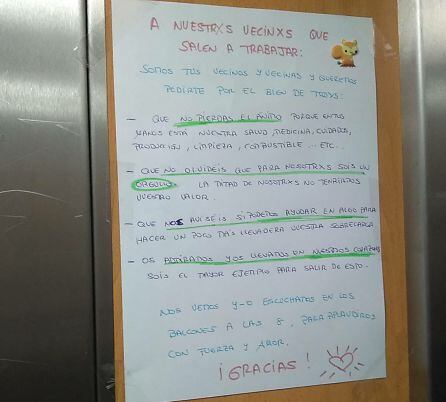 A NUESTRXS VECINXS QUE
SALEN A TRABAJAR:
SOMOS TUS VECINOS Y VECINAS Y QUEREMOS
PEDIRTE POR EL BIEN DE TODXS:
- QUE NO PIERDAS EL ÁNIMO PORQUE EN TUS
MANOS ESTÁ NUESTRA SALUD, MEDICINA, CUIDADOS,
PRODUCCIÓN, LIMPIEZA, COMBUSTIBLE... ETC.
- QUE NO OLVIDEIS QUE PARA NOSOTRXS SOIS UN
ORGULLO. LA MITAD DE NOSOTRXS NO TENDRÍAMOS
VUESTRO VALOR.
- QUE NOS AVISEIS SI PODEMOS AYUDAR EN ALGO PARA
HACER UN POCO MÁS LLEVADERA VUESTRA SOBRECARGA
- OS ADMIRAMOS Y OS LLEVAMOS EN NUESTROS CORAZONES
SOIS EL MAYOR EJEMPLO PARA SALIR DE ESTO.
NOS VEMOS Y-O ESCUCHAMOS EN LOS
BALCONES A LAS 8, PARA APLAUDIROS
CON FUERZA Y AMOR.
¡GRACIAS!